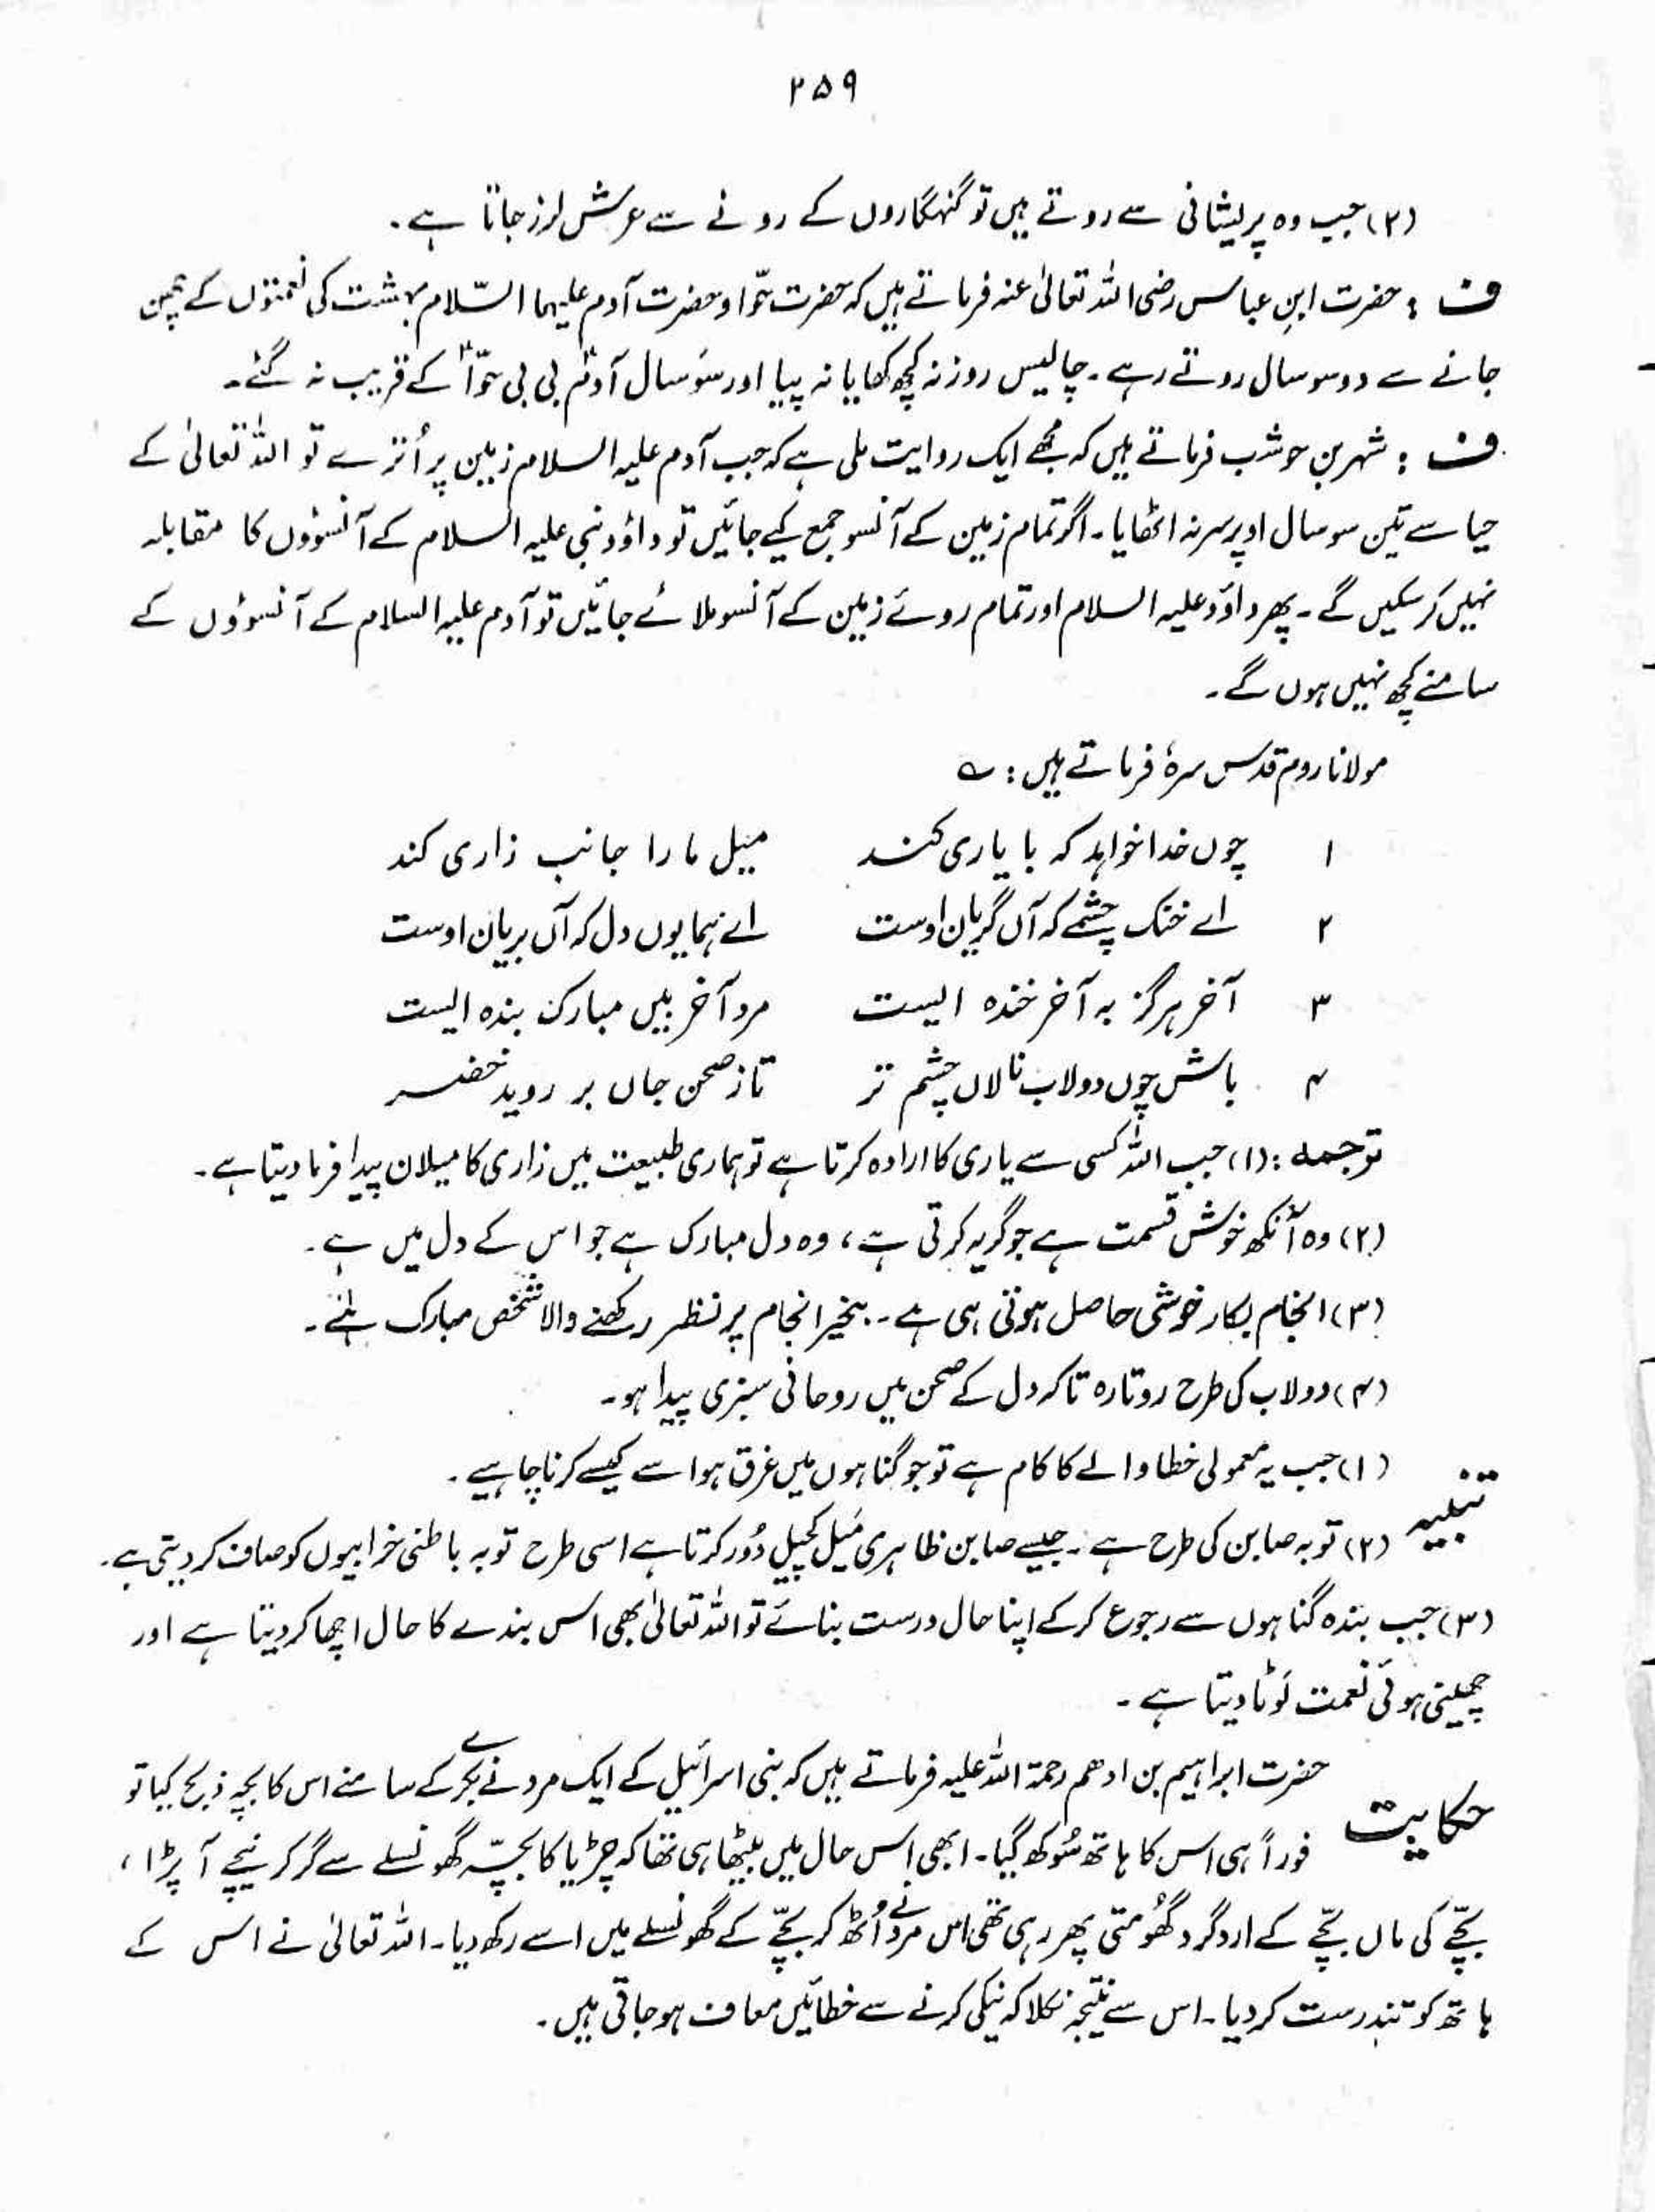 ۲۵۹
(۲) جب وہ پریشانی سے روتے ہیں تو گنہگاروں کے رونے سے عرش لرز جاتا ہے۔
ف : حضرت ابنِ عباس رضی اللہ تعالیٰ عنہ فرماتے ہیں کہ حضرت حوّا و حضرت آدم علیہما السّلام بہشت کی نعمتوں کے چھن
جانے سے دو سو سال روتے رہے۔ چالیس روز نہ کچھ کھایا نہ پیا اور سَو سال آدمؑ بی بی حوّاؑ کے قریب نہ گئے۔
ف : شہر بن حوشب فرماتے ہیں کہ مجھے ایک روایت ملی ہے کہ جب آدم علیہ السلام زمین پر اُترے تو اللہ تعالیٰ کے
حیا سے تین سو سال اوپر سر نہ اٹھایا۔ اگر تمام زمین کے آنسو جمع کیے جائیں تو داؤد نبی علیہ السلام کے آنسوؤں کا مقابلہ
نہیں کر سکیں گے۔ پھر داؤد علیہ السلام اور تمام روئے زمین کے آنسو ملائے جائیں تو آدم علیہ السلام کے آنسوؤں کے
سامنے کچھ نہیں ہوں گے۔
مولانا روم قدس سرہٗ فرماتے ہیں : ؎
۱ چوں خدا خواہد کہ با یاری کند میل ما را جانب زاری کند
۲ اے خنک چشمے کہ آں گریان اوست اے ہمایوں دل کہ آں بریان اوست
۳ آخر ہرگز بہ آخر خندہ ایست مرد آخر بیں مبارک بندہ ایست
۴ باش چوں دولاب نالاں چشم تر تا ز صحن جاں بر روید خضر
توجمہ : (۱) جب اللہ کسی سے یاری کا ارادہ کرتا ہے تو ہماری طبیعت میں زاری کا میلان پیدا فرما دیتا ہے۔
(۲) وہ آنکھ خوش قسمت ہے جو گریہ کرتی ہے، وہ دل مبارک ہے جو اس کے دل میں ہے۔
(۳) انجام بکار خوشی حاصل ہوتی ہی ہے۔ بخیر انجام پر نظر رکھنے والا شخص مبارک ہے۔
(۴) دولاب کی طرح روتا رہ تاکہ دل کے صحن میں روحانی سبزی پیدا ہو۔
تنبیہ (۱) جب یہ معمولی خطا والے کا کام ہے تو جو گناہوں میں غرق ہو اسے کیسے کرنا چاہیے۔
(۲) توبہ صابن کی طرح ہے۔ جیسے صابن ظاہری مَیل کچیل دُور کرتا ہے اسی طرح توبہ باطنی خرابیوں کو صاف کر دیتی ہے۔
(۳) جب بندہ گناہوں سے رجوع کر کے اپنا حال درست بنائے تو اللہ تعالیٰ بھی اس بندے کا حال اچھا کر دیتا ہے اور
چھینی ہوئی نعمت لَوٹا دیتا ہے۔
حکایت حضرت ابراہیم بن ادھم رحمۃ اللہ علیہ فرماتے ہیں کہ بنی اسرائیل کے ایک مرد نے بکرے کے سامنے اس کا بچہ ذبح کیا تو
فوراً ہی اس کا ہاتھ سُوکھ گیا۔ ابھی اس حال میں بیٹھا ہی تھا کہ چڑیا کا بچّہ گھونسلے سے گر کر نیچے آ پڑا،
بچّے کی ماں بچّے کے اردگرد گھُومتی پھر رہی تھی اس مرد نے اُٹھ کر بچّے کے گھونسلے میں اسے رکھ دیا۔ اللہ تعالیٰ نے اس کے
ہاتھ کو تندرست کر دیا۔ اس سے نتیجہ نکلا کہ نیکی کرنے سے خطائیں معاف ہو جاتی ہیں۔